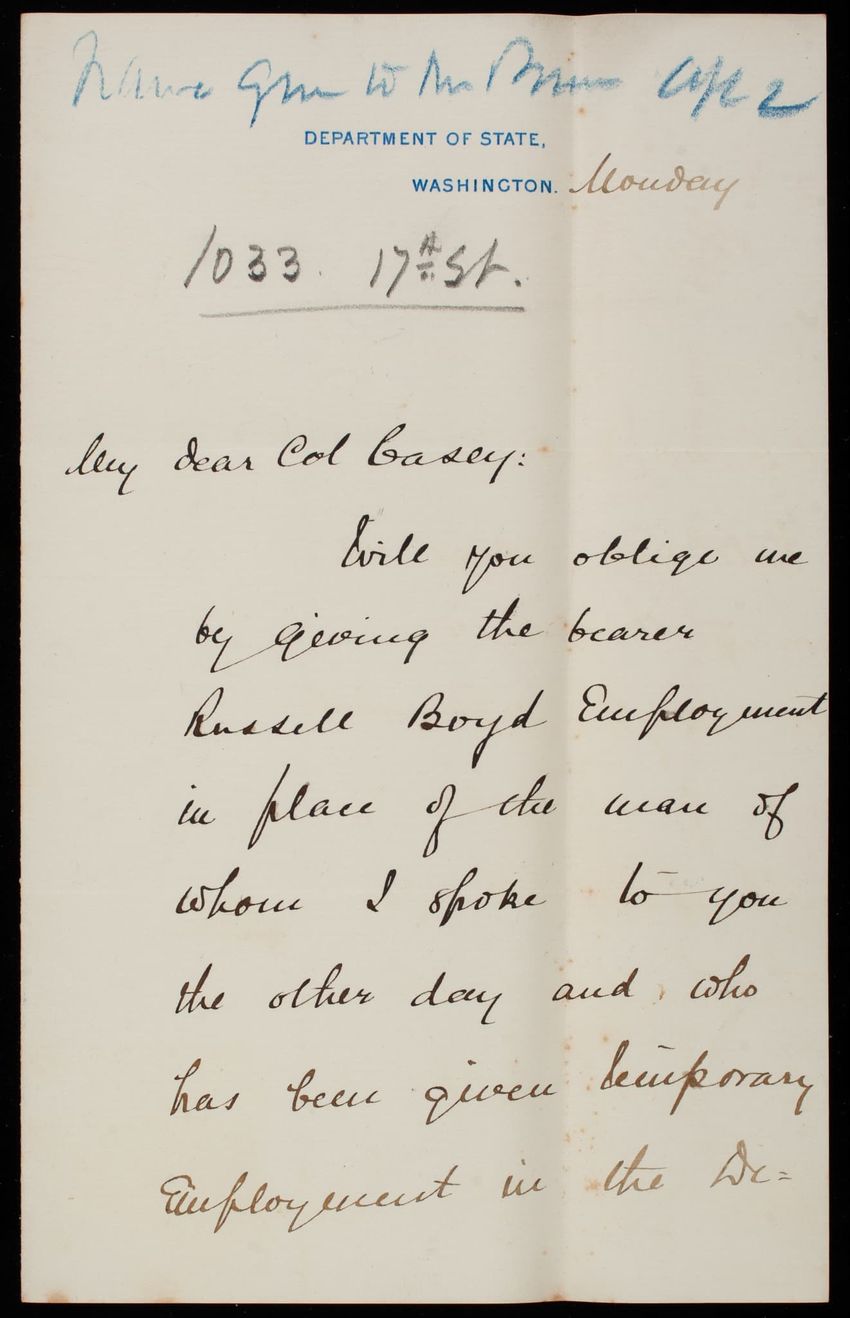 Name Given to Mr Brown Apl 2
DEPARTMENT OF STATE,
WASHINGTON. Monday
1033. 17th St.
My dear Col Casey:
Will you oblige me
by giving the bearer
Russell Boyd Employment
in place of the man of
whom I spoke to you
the other day and who
has been given temporary
Employment in the De=